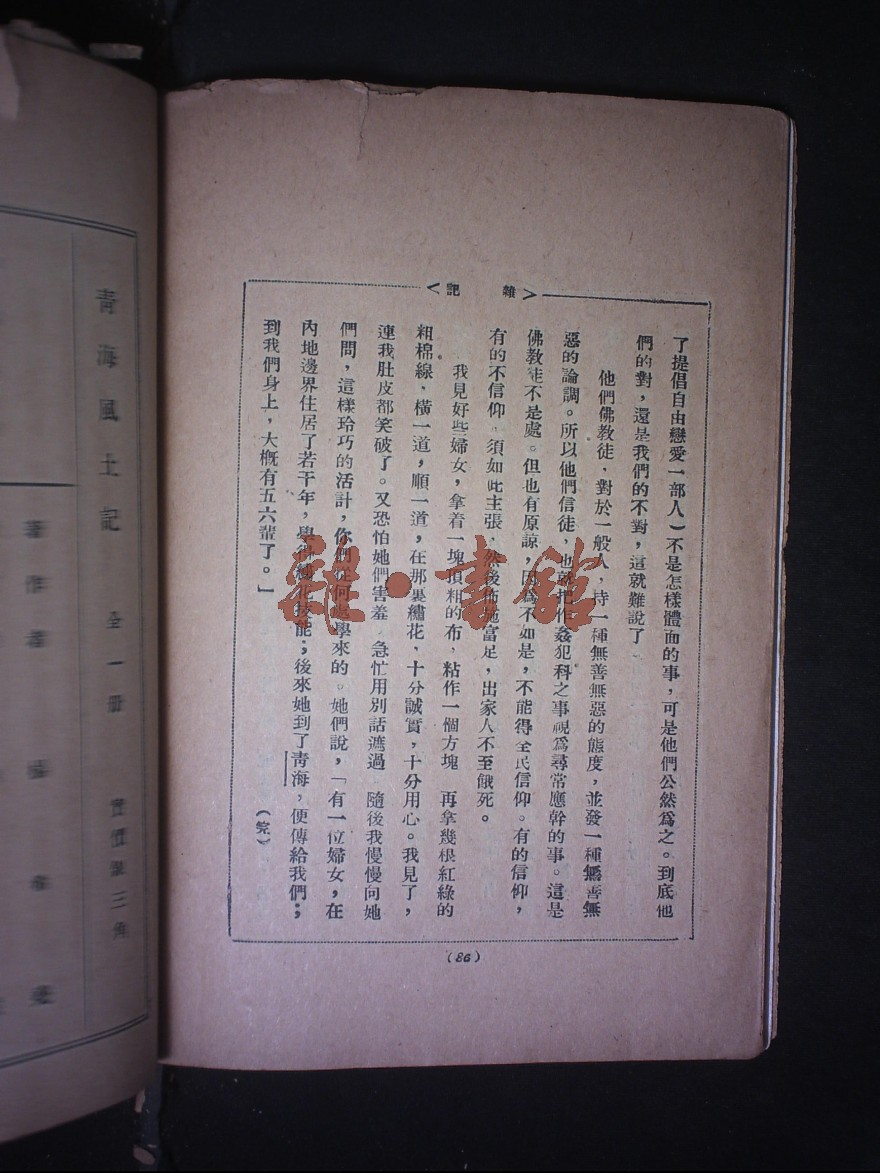 雜記
了提倡自由戀愛一部人）不是怎樣體面的事，可是他們公然爲之。到底他
們的對，還是我們的不對，這就難說了
他們佛教徒，對於一般人，持一種無善無惡的態度，並發一種無善無
惡的論調。所以他們信徒，也就把作姦犯科之事視爲尋常應幹的事。這是
佛教徒不是處。但也有原諒，因爲不如是，不能得全民信仰。有的信仰，
有的不信仰。須如此主張，然後佈施富足，出家人不至餓死。
我見好些婦女，拿着一塊頂粗的布，粘作一個方塊 再拿幾根紅綠的
粗棉線，橫一道，順一道，在那裏繡花，十分誠實，十分用心。我見了，
連我肚皮都笑破了。又恐怕她們害羞 急忙用別話遮過 隨後我慢慢向她
們問，這樣玲巧的活計，你們從何處學來的。她們說，「有一位婦女，在
內地邊界住居了若干年，學得繡花技能；後來她到了青海，便傳給我們；
到我們身上，大概有五六輩了。」
（完）
（86）
雒·書館
青海風土記 全一册 實價 三角
著作者 楊希堯